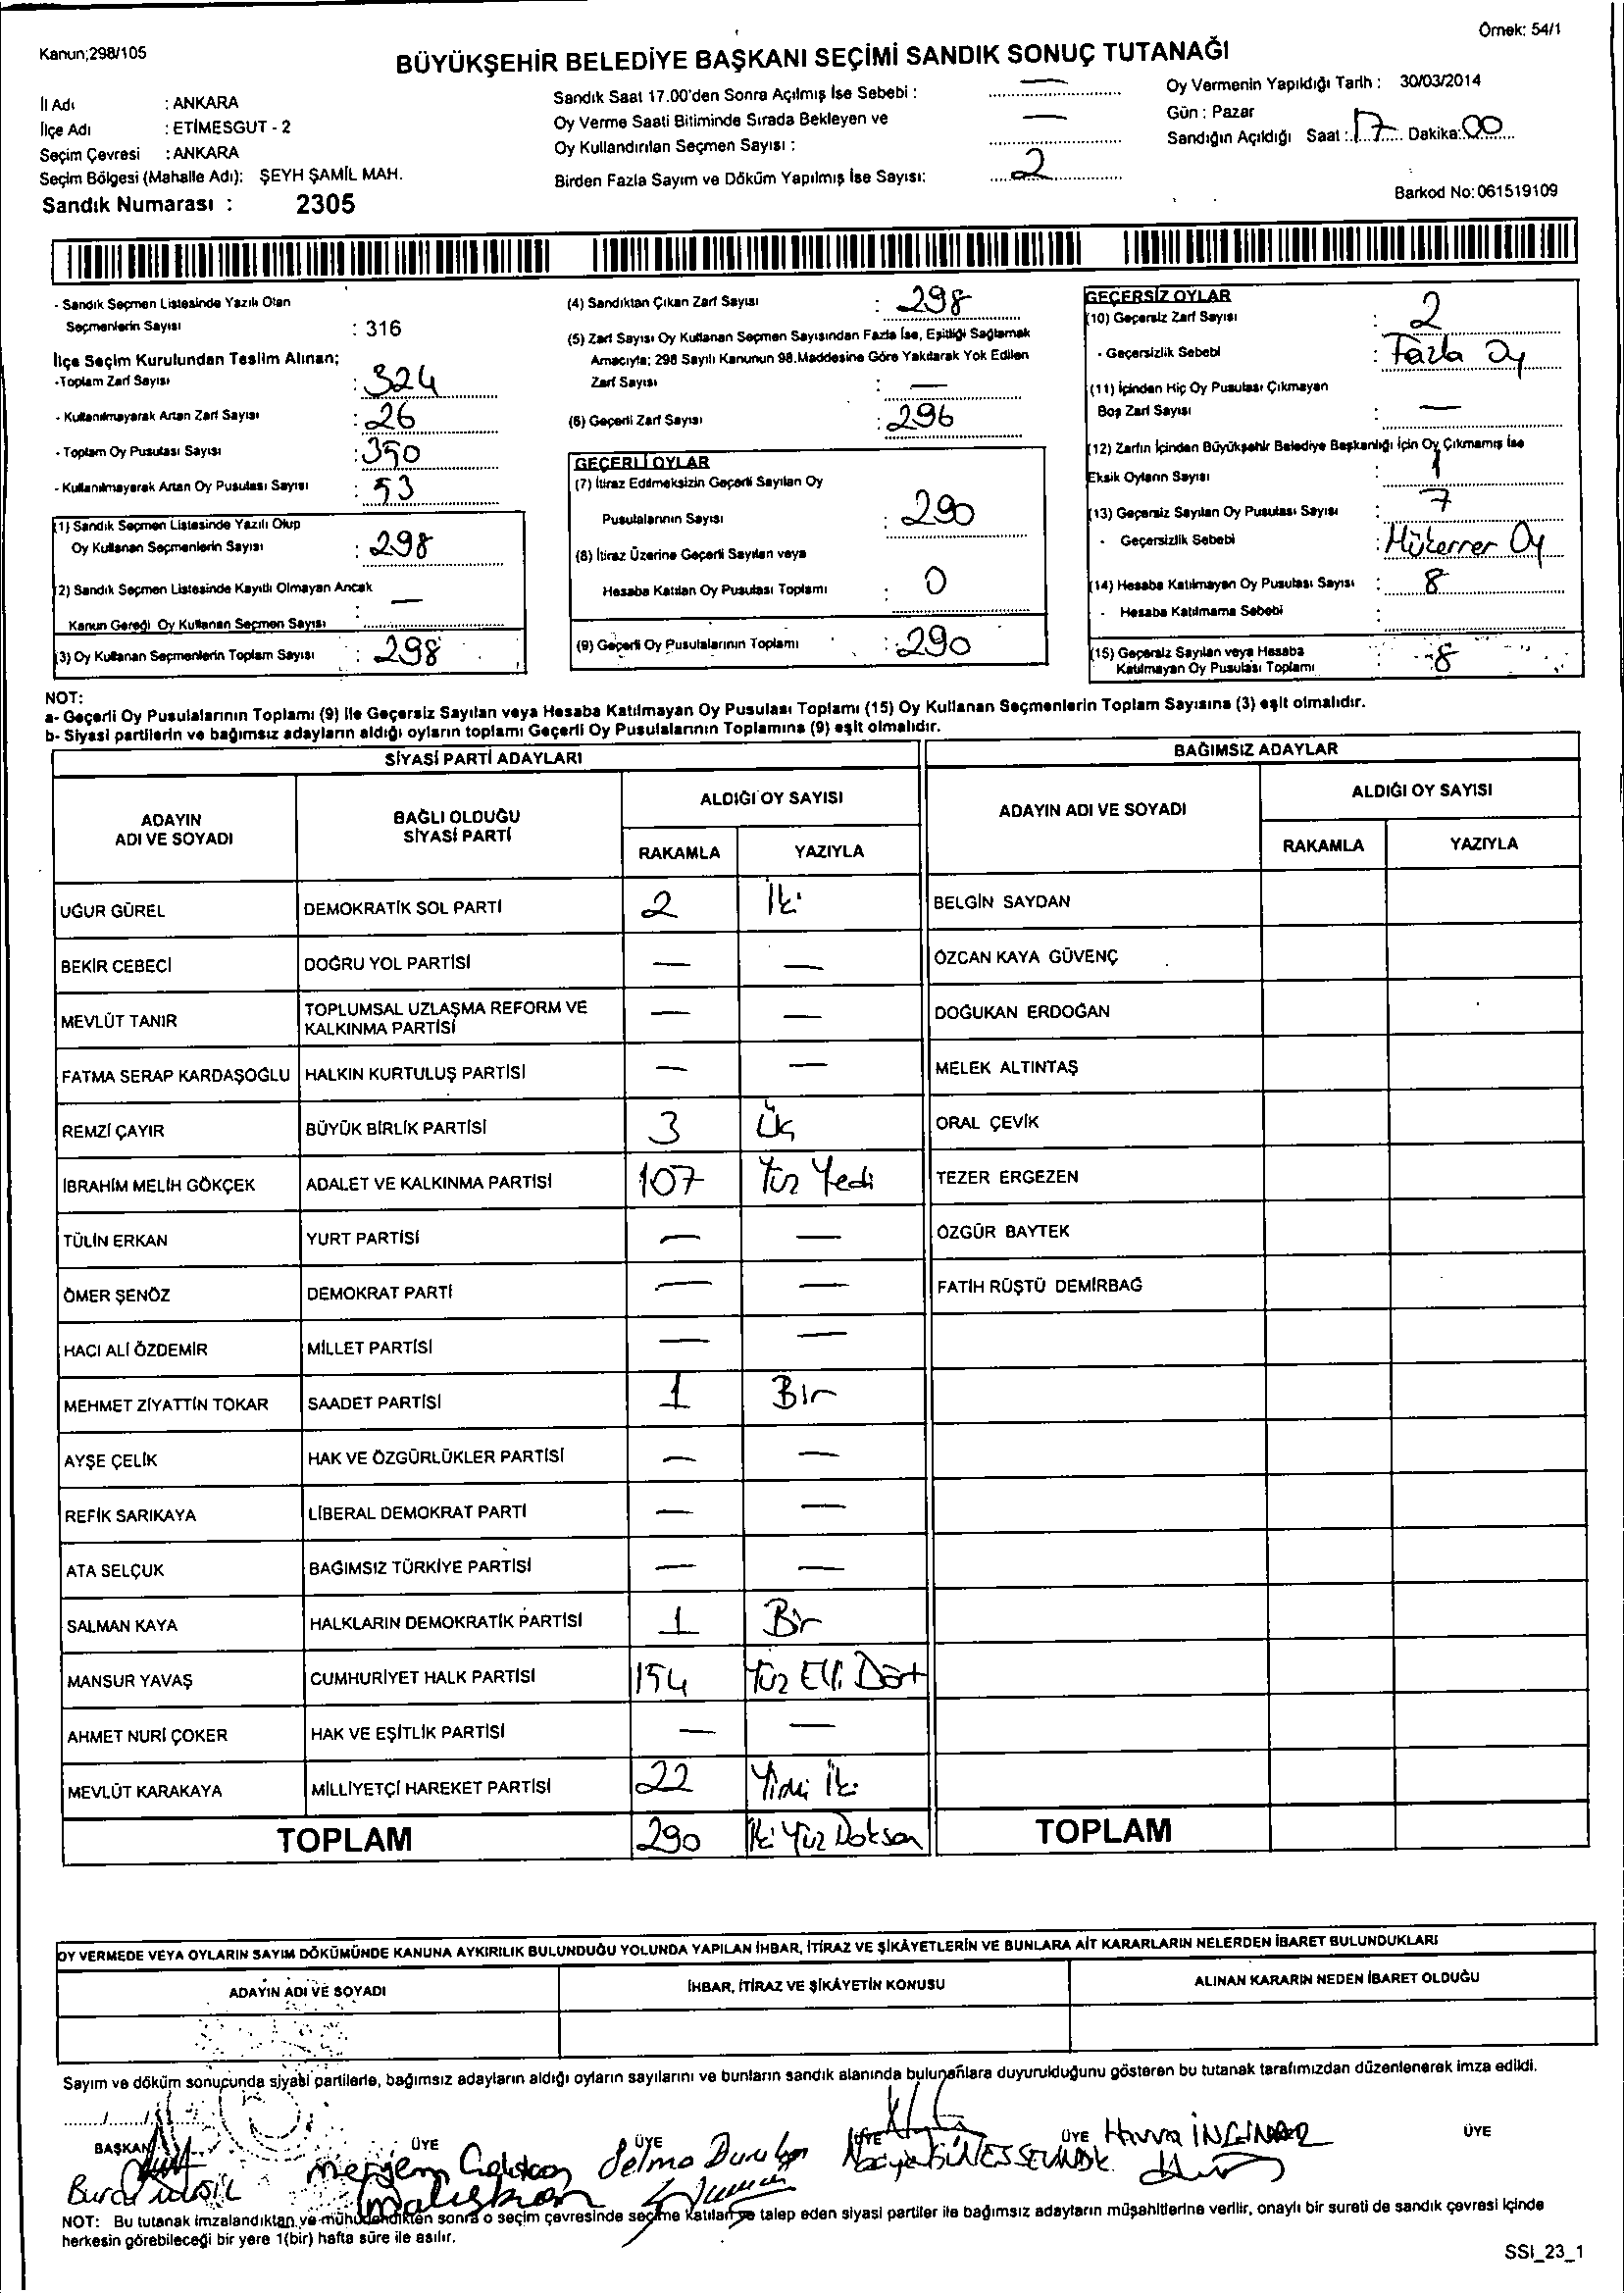 Örnek: 54/1
Kanun;298/105
BÜYÜKŞEHİR BELEDİYE BAŞKANI SEÇİMİ SANDIK SONUÇ TUTANAĞI
İl Adı : ANKARA
İlçe Adı : ETİMESGUT - 2
Seçim Çevresi : ANKARA
Seçim Bölgesi (Mahalle Adı): ŞEYH ŞAMİL MAH.
Sandık Numarası : 2305
Sandık Saat 17.00'den Sonra Açılmış İse Sebebi : —
Oy Verme Saati Bitiminde Sırada Bekleyen ve
Oy Kullandırılan Seçmen Sayısı : —
Birden Fazla Sayım ve Döküm Yapılmış İse Sayısı: 2
Oy Vermenin Yapıldığı Tarih : 30/03/2014
Gün : Pazar
Sandığın Açıldığı Saat : 17 Dakika: 00
Barkod No: 061519109
- Sandık Seçmen Listesinde Yazılı Olan
Seçmenlerin Sayısı : 316
İlçe Seçim Kurulundan Teslim Alınan;
-Toplam Zarf Sayısı : 324
- Kullanılmayarak Artan Zarf Sayısı : 26
- Toplam Oy Pusulası Sayısı : 350
- Kullanılmayarak Artan Oy Pusulası Sayısı : 53
(1) Sandık Seçmen Listesinde Yazılı Olup
Oy Kullanan Seçmenlerin Sayısı : 298
(2) Sandık Seçmen Listesinde Kayıtlı Olmayan Ancak
Kanun Gereği Oy Kullanan Seçmen Sayısı : —
(3) Oy Kullanan Seçmenlerin Toplam Sayısı : 298
(4) Sandıktan Çıkan Zarf Sayısı : 298
(5) Zarf Sayısı Oy Kullanan Seçmen Sayısından Fazla İse, Eşitliği Sağlamak
Amacıyla; 298 Sayılı Kanunun 98.Maddesine Göre Yakılarak Yok Edilen
Zarf Sayısı : —
(6) Geçerli Zarf Sayısı : 296
GEÇERLİ OYLAR
(7) İtiraz Edilmeksizin Geçerli Sayılan Oy
Pusulalarının Sayısı : 290
(8) İtiraz Üzerine Geçerli Sayılan veya
Hesaba Katılan Oy Pusulası Toplamı : 0
(9) Geçerli Oy Pusulalarının Toplamı : 290
GEÇERSİZ OYLAR
(10) Geçersiz Zarf Sayısı : 2
- Geçersizlik Sebebi : Fazla Oy
(11) İçinden Hiç Oy Pusulası Çıkmayan
Boş Zarf Sayısı : —
(12) Zarfın İçinden Büyükşehir Belediye Başkanlığı İçin Oy Çıkmamış İse
Eksik Oyların Sayısı : 1
(13) Geçersiz Sayılan Oy Pusulası Sayısı : 7
- Geçersizlik Sebebi : Mükerrer Oy
(14) Hesaba Katılmayan Oy Pusulası Sayısı : 8
- Hesaba Katılmama Sebebi :
(15) Geçersiz Sayılan veya Hesaba
Katılmayan Oy Pusulası Toplamı : 8
NOT:
a- Geçerli Oy Pusulalarının Toplamı (9) ile Geçersiz Sayılan veya Hesaba Katılmayan Oy Pusulası Toplamı (15) Oy Kullanan Seçmenlerin Toplam Sayısına (3) eşit olmalıdır.
b- Siyasi partilerin ve bağımsız adayların aldığı oyların toplamı Geçerli Oy Pusulalarının Toplamına (9) eşit olmalıdır.
SİYASİ PARTİ ADAYLARI BAĞIMSIZ ADAYLAR
ADAYIN ADI VE SOYADI BAĞLI OLDUĞU SİYASİ PARTİ ALDIĞI OY SAYISI ADAYIN ADI VE SOYADI ALDIĞI OY SAYISI
RAKAMLA YAZIYLA RAKAMLA YAZIYLA
UĞUR GÜREL DEMOKRATİK SOL PARTİ 2 İki BELGİN SAYDAN
BEKİR CEBECİ DOĞRU YOL PARTİSİ — — ÖZCAN KAYA GÜVENÇ
MEVLÜT TANIR TOPLUMSAL UZLAŞMA REFORM VE KALKINMA PARTİSİ — — DOĞUKAN ERDOĞAN
FATMA SERAP KARDAŞOĞLU HALKIN KURTULUŞ PARTİSİ — — MELEK ALTINTAŞ
REMZİ ÇAYIR BÜYÜK BİRLİK PARTİSİ 3 Üç ORAL ÇEVİK
İBRAHİM MELİH GÖKÇEK ADALET VE KALKINMA PARTİSİ 107 Yüz Yedi TEZER ERGEZEN
TÜLİN ERKAN YURT PARTİSİ — — ÖZGÜR BAYTEK
ÖMER ŞENÖZ DEMOKRAT PARTİ — — FATİH RÜŞTÜ DEMİRBAĞ
HACI ALİ ÖZDEMİR MİLLET PARTİSİ — —
MEHMET ZİYATTİN TOKAR SAADET PARTİSİ 1 Bir
AYŞE ÇELİK HAK VE ÖZGÜRLÜKLER PARTİSİ — —
REFİK SARIKAYA LİBERAL DEMOKRAT PARTİ — —
ATA SELÇUK BAĞIMSIZ TÜRKİYE PARTİSİ — —
SALMAN KAYA HALKLARIN DEMOKRATİK PARTİSİ 1 Bir
MANSUR YAVAŞ CUMHURİYET HALK PARTİSİ 154 Yüz Elli Dört
AHMET NURİ ÇOKER HAK VE EŞİTLİK PARTİSİ — —
MEVLÜT KARAKAYA MİLLİYETÇİ HAREKET PARTİSİ 22 Yirmi İki
TOPLAM 290 İki Yüz Doksan TOPLAM
OY VERMEDE VEYA OYLARIN SAYIM DÖKÜMÜNDE KANUNA AYKIRILIK BULUNDUĞU YOLUNDA YAPILAN İHBAR, İTİRAZ VE ŞİKÂYETLERİN VE BUNLARA AİT KARARLARIN NELERDEN İBARET BULUNDUKLARI
ADAYIN ADI VE SOYADI İHBAR, İTİRAZ VE ŞİKÂYETİN KONUSU ALINAN KARARIN NEDEN İBARET OLDUĞU
Sayım ve döküm sonucunda siyasi partilerle, bağımsız adayların aldığı oyların sayılarını ve bunların sandık alanında bulunanlara duyurulduğunu gösteren bu tutanak tarafımızdan düzenlenerek imza edildi.
....../....../
BAŞKAN ÜYE ÜYE ÜYE ÜYE ÜYE
Meryem Çalışkan Selma Havva
NOT: Bu tutanak imzalandıktan ve mühürlendikten sonra o seçim çevresinde seçime katılan ve talep eden siyasi partiler ile bağımsız adayların müşahitlerine verilir, onaylı bir sureti de sandık çevresi içinde
herkesin görebileceği bir yere 1(bir) hafta süre ile asılır.
SSI_23_1